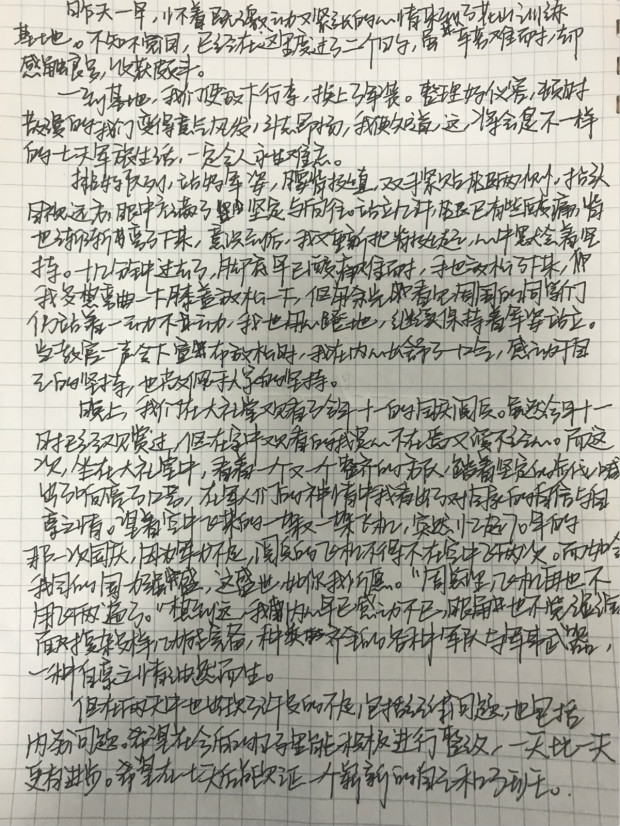 昨天一早,怀着既激动又紧张的心情来到了花山训练
基地。不知不觉间,已经在这里度过了二个日夜,虽军营难耐,却
感触良多,收获颇丰。
一到基地,我们便放下行李,换上了军装。整理好仪容,顿时
散漫的我们变得意气风发,斗志昂扬,我便知道,这,将会是不一样
的七天军旅生活,一定令人永生难忘。
排好队列,站好军姿,腰背挺直,双手紧贴裤缝两侧,抬头
目视远方,眼中充满了坚定与向往。站立几分,已有些酸痛,背
也渐渐弯了下来,意识到后,我又重新把背挺起,心中默念着坚
持。十几分钟过去了,脚底早已酸痛难耐,手也放松了下来,
我多想弯曲一下膝盖放松一下,但用余光看见周围的同学们
仍站着一动不动,我也用心暗地,继续保持着军姿站立。
当教官一声令下宣布放松时,我在内心舒了一口气,感动于自
己的坚持,也感动于大家的坚持。
晚上,我们在大礼堂观看了今年十一的国庆阅兵。虽说今年十一
时已经观赏过,但在家中观看的我是心不在焉又漫不经心。而这
次,坐在大礼堂中,看着一个又一个整齐的方队,踏着坚定的步伐,喊
出了响亮的口号,在军人们的神情中我看出了对国家的自信与自
豪之情。望着空中飞来的一架又一架飞机,突然忆起70年前的
那一次国庆,因为军力不足,阅兵的飞机不得不在空中飞两次。而如今
我国的国力强盛,这盛世,如你我所愿。"周总理,飞机再也不
用飞两遍了。"想到这,我的内心早已感动不已,眼角也不觉湿润
面对多种多样的功能装备,种类齐全的各种军队与军事武器,
一种自豪之情油然而生。
但在两天中也出现了许多的不足,包括纪律问题,也包括
内务问题。希望在今后的日子里能积极进行整改,一天比一天
更有进步。希望在七天后能见证一个崭新的自己和3班。